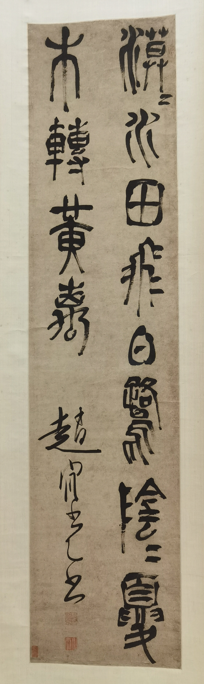 漠〻水田飛白鷺陰〻夏
木轉黃鸝
趙宧光書